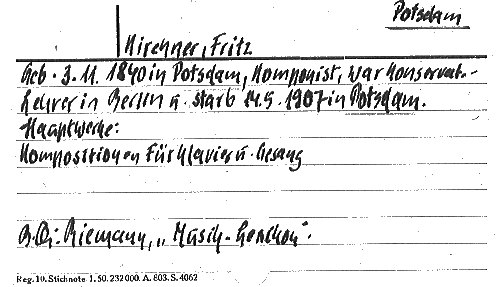 Potsdam
Kirchner, Fritz
Geb. 3.11.1840 in Potsdam, Komponist, war Konservat.-
Lehrer in Berlin u. starb 14.5.1907 in Potsdam.
Hauptwerke:
Kompositionen für Klavier u. Gesang
Riemann, „Musik-Lexikon".
Reg. 10. Stichnote 1. 50. 232000. A. 803. S. 4062